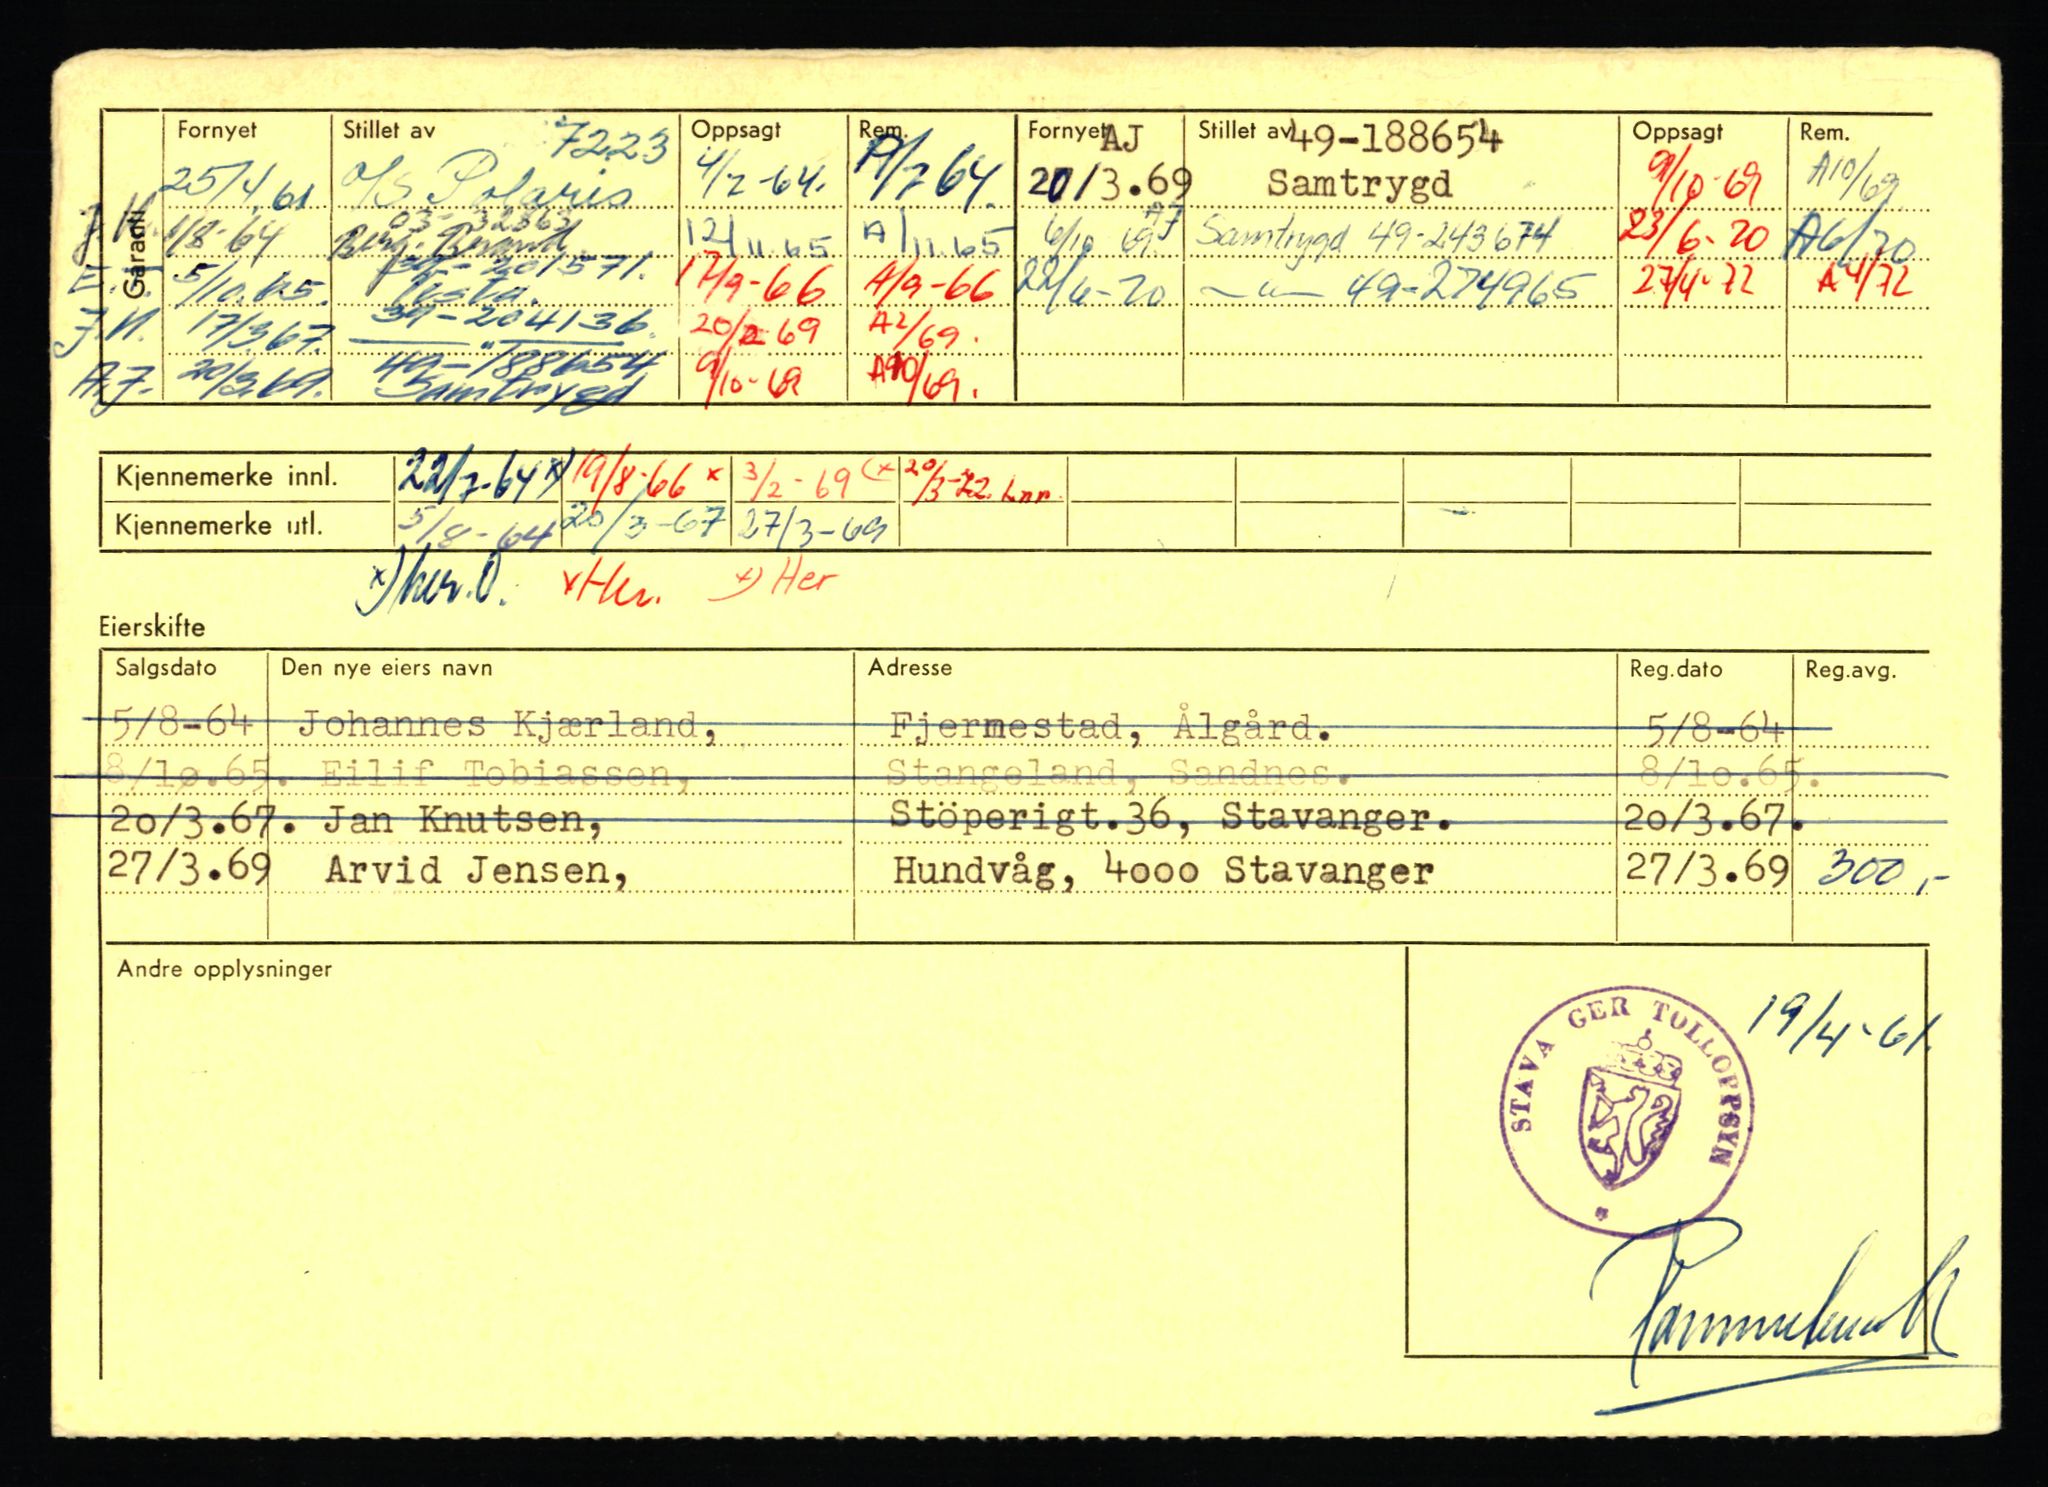 Garanti
Fornyet Stillet av 7223 Oppsagt Rem. Fornyet AJ Stillet av 49-188654 Oppsagt Rem.
25/4.61 A/S Polaris 4/7-64. A/7 64. 20/3.69 Samtrygd 9/10-69 A10/69
J.K. 1/8-64 03-32863 12/11.65 A/11.65 6/10 69 AJ Samtrygd 49-243674 23/6-70 A6/70
E.T. 5/10.65. 39-201571. 17/9-66 A/9-66 22/6-70 —"— 49-274965 27/4-72 A4/72
Vesta.
J.K. 17/3.67. 39-204136. 20/2-69 A2/69.
—"—
A.J. 20/3.69. 49-188654 9/10-69 A10/69.
Samtrygd
Kjennemerke innl. 22/7-64 x) 19/8-66 x 3/2-69 (x 20/3-72.
Kjennemerke utl. 5/8-64 20/3-67 27/3-69
x) her.O. x Her. x) Her
Eierskifte
Salgsdato Den nye eiers navn Adresse Reg.dato Reg.avg.
5/8-64 Johannes Kjærland, Fjermestad, Ålgård. 5/8-64
8/10.65. Eilif Tobiassen, Stangeland, Sandnes. 8/10.65.
20/3.67. Jan Knutsen, Stöperigt.36, Stavanger. 20/3.67.
27/3.69 Arvid Jensen, Hundvåg, 4000 Stavanger 27/3.69 300,-
Andre opplysninger
STAVANGER TOLLOPPSYN
19/4-61.